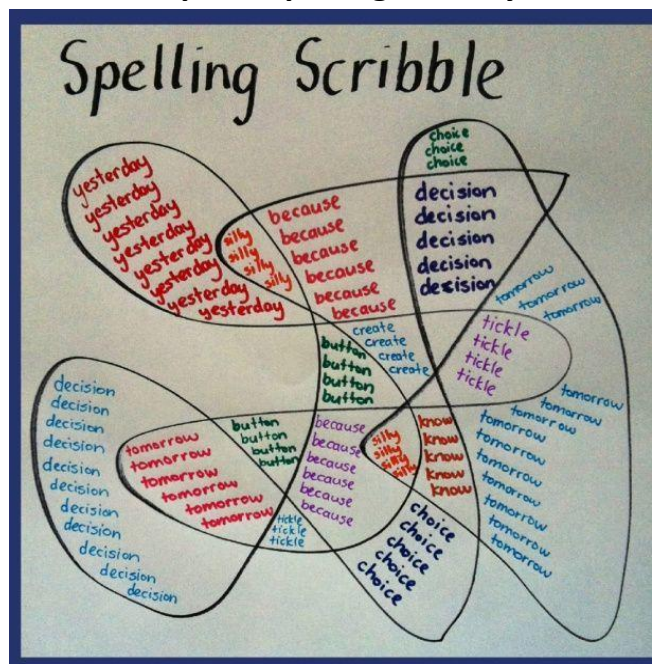 Spelling Scribble
choice
choice
choice
yesterday
yesterday
yesterday
yesterday
yesterday
yesterday
yesterday
yesterday
silly
silly
silly
silly
because
because
because
because
because
because
decision
decision
decision
decision
decision
tomorrow
tomorrow
tomorrow
create
create
create
create
tickle
tickle
tickle
tickle
button
button
button
button
decision
decision
decision
decision
decision
decision
decision
decision
decision
decision
decision
tomorrow
tomorrow
tomorrow
tomorrow
tomorrow
button
button
button
button
because
because
because
because
because
because
silly
silly
silly
silly
know
know
know
know
know
tomorrow
tomorrow
tomorrow
tomorrow
tomorrow
tomorrow
tomorrow
tomorrow
tomorrow
tomorrow
tickle
tickle
tickle
choice
choice
choice
choice
choice